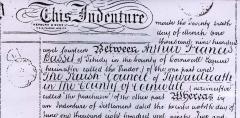 This Indenture made the
day of March one thousand nine hundred
and fourteen Between Arthur Francis
Basset of Tehidy in the County of Cornwall Esquire
(hereinafter called the Vendor) of the one part and
The Parish Council of Tywardreath
in The County of Cornwall (hereinafter
called the purchasers) of the other part Whereas by
an Indenture of Settlement dated the day of
June one thousand